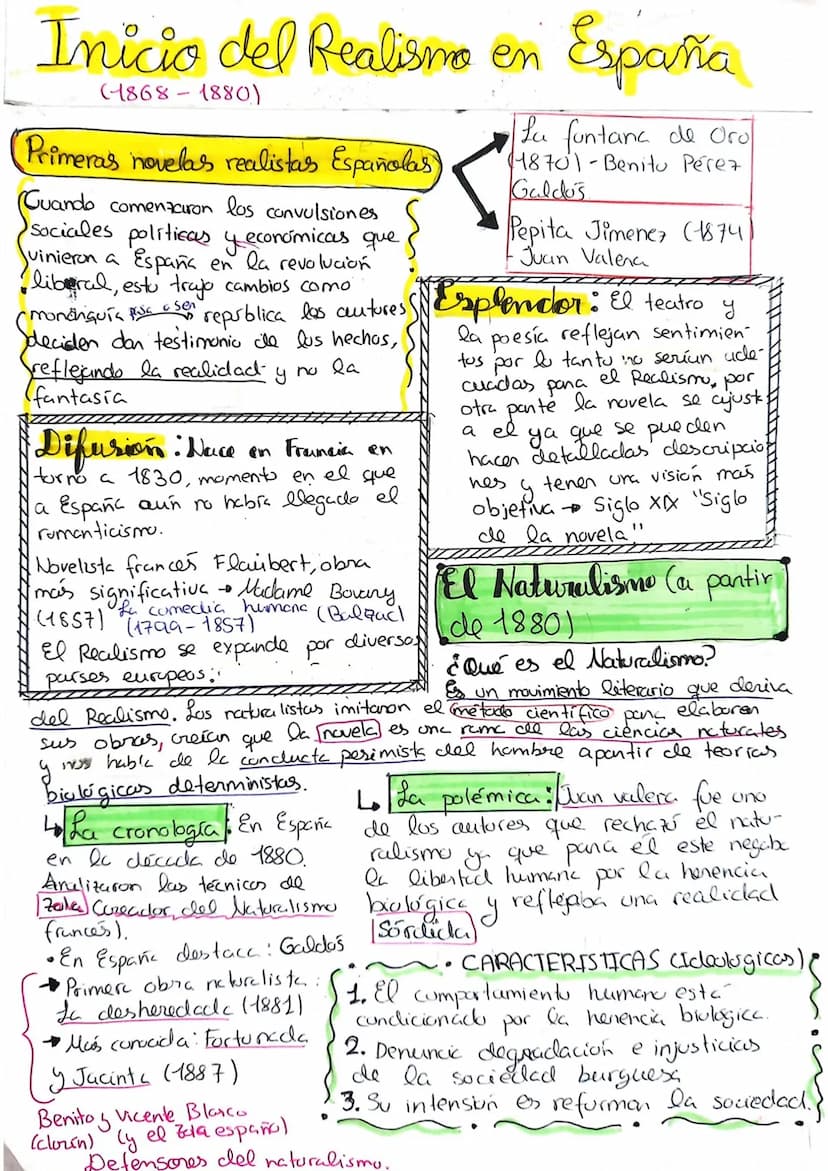 Inicio del Realismo en España
(1868 - 1880)
Primeras novelas realistas Españolas
La fontana de Oro
(1870) - Benito Pérez
Galdós
Pepita Jimenez (1874)
- Juan Valera
Cuando comenzaron las convulsiones
sociales políticas y económicas que
vinieron a España en la revolución
liberal, esto trajo cambios como
monarquía pasa a ser república los autores
deciden dar testimonio de los hechos,
reflejando la realidad y no la
fantasía
Esplendor: El teatro y
la poesía reflejan sentimien
tos por lo tanto no serían ade-
cuadas para el Realismo, por
otra parte la novela se ajusta
a el ya que se pueden
hacer detalladas descripcio
nes y tener una visión más
objetiva → Siglo XIX "Siglo
de la novela"
Difusión: Nace en Francia en
torno a 1830, momento en el que
a España aún no había llegado el
romanticismo.
Novelista francés Flauibert, obra
más significativa → Madame Bovary
(1857) La comedia humana (Balzac)
(1799 - 1857)
El Realismo se expande por diversos
países europeos.
El Naturalismo (a partir
de 1880)
¿Qué es el Naturalismo?
Es un movimiento literario que deriva
del Realismo. Los naturalistas imitaron el método científico para elaborar
sus obras, creían que la novela es una rama de las ciencias naturales
y nos habla de la conducta pesimista del hombre a partir de teorías
biológicas deterministas.
La cronología: En España
en la década de 1880.
Analizaron las técnicas de
Zola (creador del Naturalismo
francés).
• En España destaca: Galdós
→ Primera obra naturalista:
La desheredada (1881)
→ Más conocida: Fortunada
y Jacinta (1887)
Benito y Vicente Blasco
(clarín) (y el Zola español)
Defensores del naturalismo.
La polémica: Juan valera fue uno
de los autores que rechazó el natu-
ralismo ya que para él este negaba
la libertad humana por la herencia
biológica y reflejaba una realidad
Sórdida
CARACTERISTICAS (Ideologicas)
1. El comportamiento humano está
condicionado por la herencia biológica.
2. Denuncia degradación e injusticias
de la sociedad burguesa
3. Su intensión es reformar la sociedad.